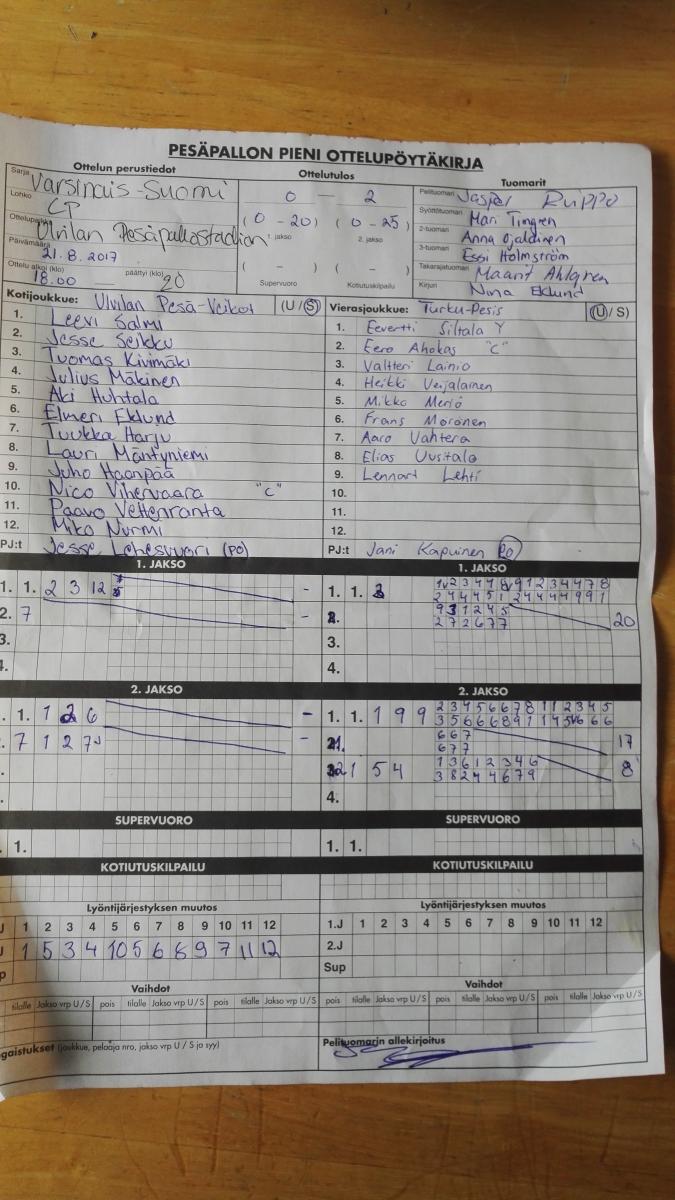 PESÄPALLON PIENI OTTELUPÖYTÄKIRJA
Ottelun perustiedot
Sarja Varsinais-Suomi
Lohko CP
Ottelupaikka Ulvilan Pesäpallostadion
Päivämäärä 21.8.2017
Ottelu alkoi (klo) 18.00 päättyi (klo) 20
Ottelutulos
0 - 2
(0 - 20) (0 - 25)
1. jakso 2. jakso
( - ) ( - )
Supervuoro Kotiutuskilpailu
Tuomarit
Pelituomari Jasper Ruippo
Syöttötuomari Mari Tingren
2-tuomari Anna Ojaldinen
3-tuomari Essi Holmström
Takarajatuomari Maarit Ahlgren
Kirjuri Nina Eklund
Kotijoukkue: Ulvilan Pesä-Veikot (U / S)
1. Leevi Salmi
2. Jesse Seikku
3. Tuomas Kivimäki
4. Julius Mäkinen
5. Aki Huhtala
6. Elmeri Eklund
7. Tuukka Harju
8. Lauri Mäntyniemi
9. Juho Haanpää
10. Nico Vihervaara "C"
11. Paavo Vettenranta
12. Miko Nurmi
PJ:t Jesse Lehesvuori (PO)
Vierasjoukkue: Turku-Pesis (U / S)
1. Eevertti Siltala Y
2. Eero Ahokas "C"
3. Valtteri Lainio
4. Heikki Veijalainen
5. Mikko Meriö
6. Frans Moronen
7. Aaro Vahtera
8. Elias Uusitalo
9. Lennart Lehti
10.
11.
12.
PJ:t Jani Kapuinen PO
1. JAKSO
1. 1. 2 3 12 -
2. 7 -
3.
4.
1. JAKSO
1. 1.
2 4 4 4 5 1 2 4 4 4 4 9 9 1
9 3 1 2 4 5
2 7 2 6 7 7 20
3.
4.
2. JAKSO
. 1. 1 2 6 -
. 7 1 2 7 -
2. JAKSO
1. 1. 1 9 9
2 3 4 5 6 6 7 8 1 1 2 3 4 5
6 6 7
6 7 7 17
1 5 4
1 3 6 1 2 3 4 6
3 8 2 4 4 6 7 9 8
4.
SUPERVUORO
1.
SUPERVUORO
1. 1.
KOTIUTUSKILPAILU
KOTIUTUSKILPAILU
Lyöntijärjestyksen muutos
J 1 2 3 4 5 6 7 8 9 10 11 12
J 1 5 3 4 10 5 6 8 9 7 11 12
p
Lyöntijärjestyksen muutos
1.J 1 2 3 4 5 6 7 8 9 10 11 12
2.J
Sup
Vaihdot
tilalle Jakso vrp U / S pois tilalle Jakso vrp U / S pois tilalle Jakso vrp U / S
Vaihdot
pois tilalle Jakso vrp U / S pois tilalle Jakso vrp U / S pois tilalle Jakso vrp U / S
gaistukset (joukkue, pelaaja nro, jakso vrp U / S ja syy)
Pelituomarin allekirjoitus